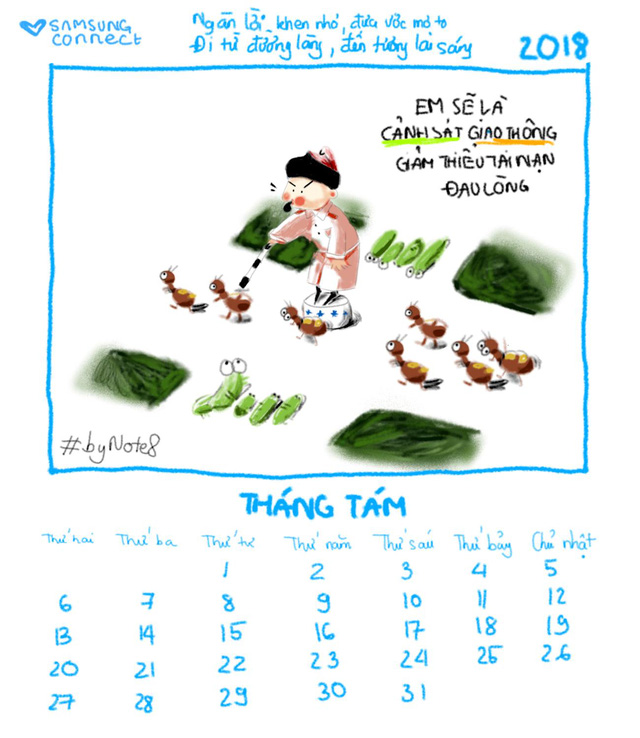 SAMSUNG
connect
Ngàn lời khen nhỏ, đưa ước mơ to
Đi từ đường làng, đến tương lai sáng
2018
EM SẼ LÀ
CẢNH SÁT GIAO THÔNG
GIẢM THIỂU TAI NẠN
ĐAU LÒNG
#byNote8
THÁNG TÁM
Thứ hai Thứ ba Thứ tư Thứ năm Thứ sáu Thứ bảy Chủ nhật
1 2 3 4 5
6 7 8 9 10 11 12
13 14 15 16 17 18 19
20 21 22 23 24 25 26
27 28 29 30 31